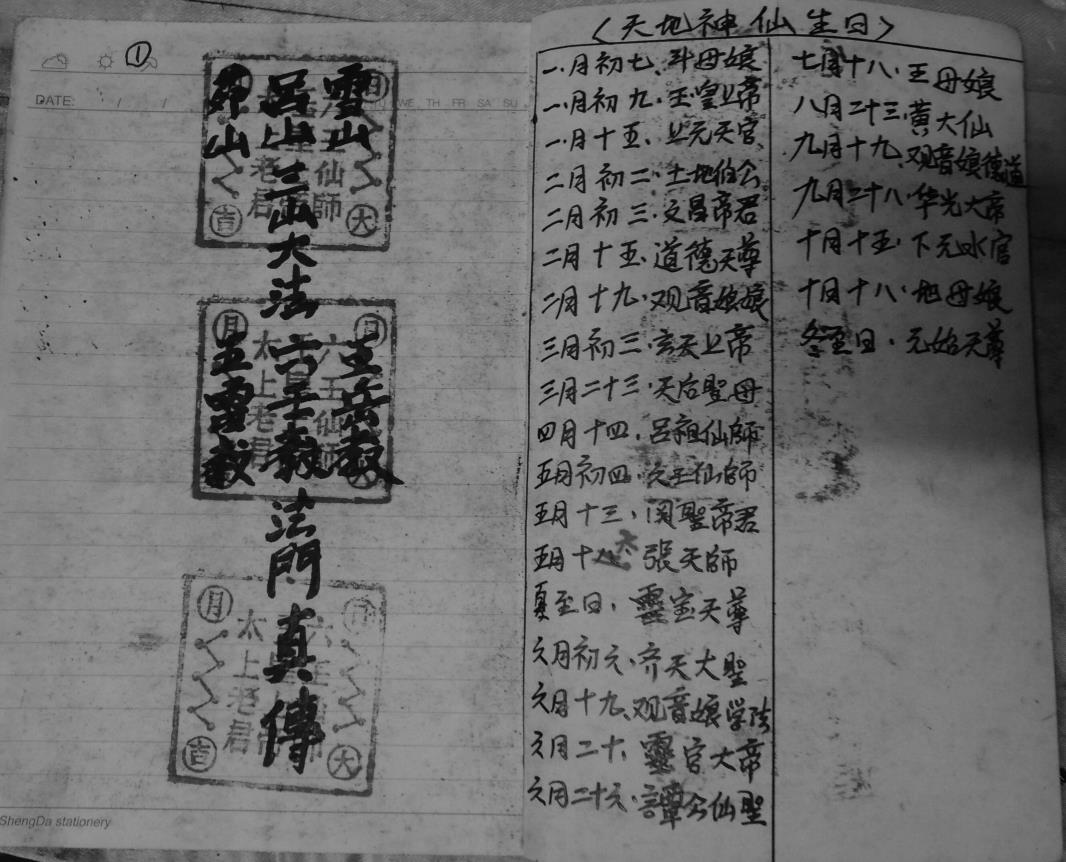 ①
DATE: / /
TH FR SA SU
雪山
呂山
茆山
三山大法
五岳教
六壬教
五雷教
法門真傳
月 日
太上老君
六壬仙師
吉 大
ShengDa stationery
〈天地神仙生日〉
一月初七、斗母娘
一月初九·玉皇上帝
一月十五·上元天官
二月初二·土地伯公
二月初三·文昌帝君
二月十五·道德天尊
二月十九·观音娘娘
三月初三·玄天上帝
三月二十三·天后聖母
四月十四·呂祖仙師
五月初四·六壬仙師
五月十三·関聖帝君
五月十八 張天師
夏至日·靈宝天尊
六月初六·齐天大聖
六月十九、观音娘学法
六月二十、靈官大帝
六月二十六·譚公仙聖
七月十八·王母娘
八月二十三·黄大仙
九月十九、观音娘德道
九月二十八·华光大帝
十月十五·下元水官
十月十八·地母娘
冬至日·元始天尊